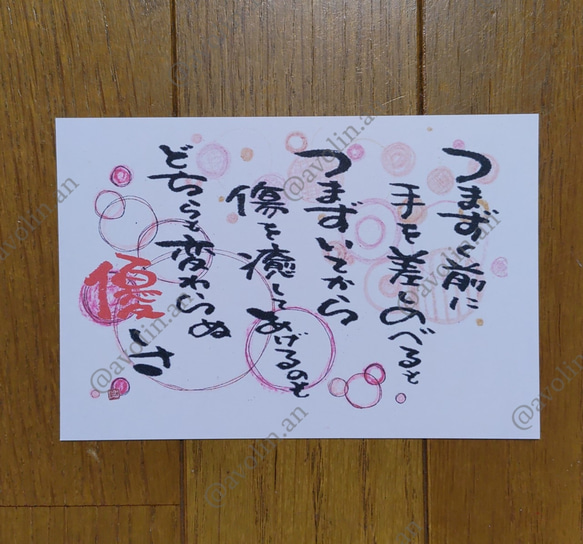 つまずく前に
手を差しのべるも
つまずいてから
傷を癒してあげるのも
どちらも変わらぬ
優しさ
@avolin.an
@avolin.an
@avolin.an
@avolin.an
@avolin.an
@avolin.an
@avolin.an
@avolin.an